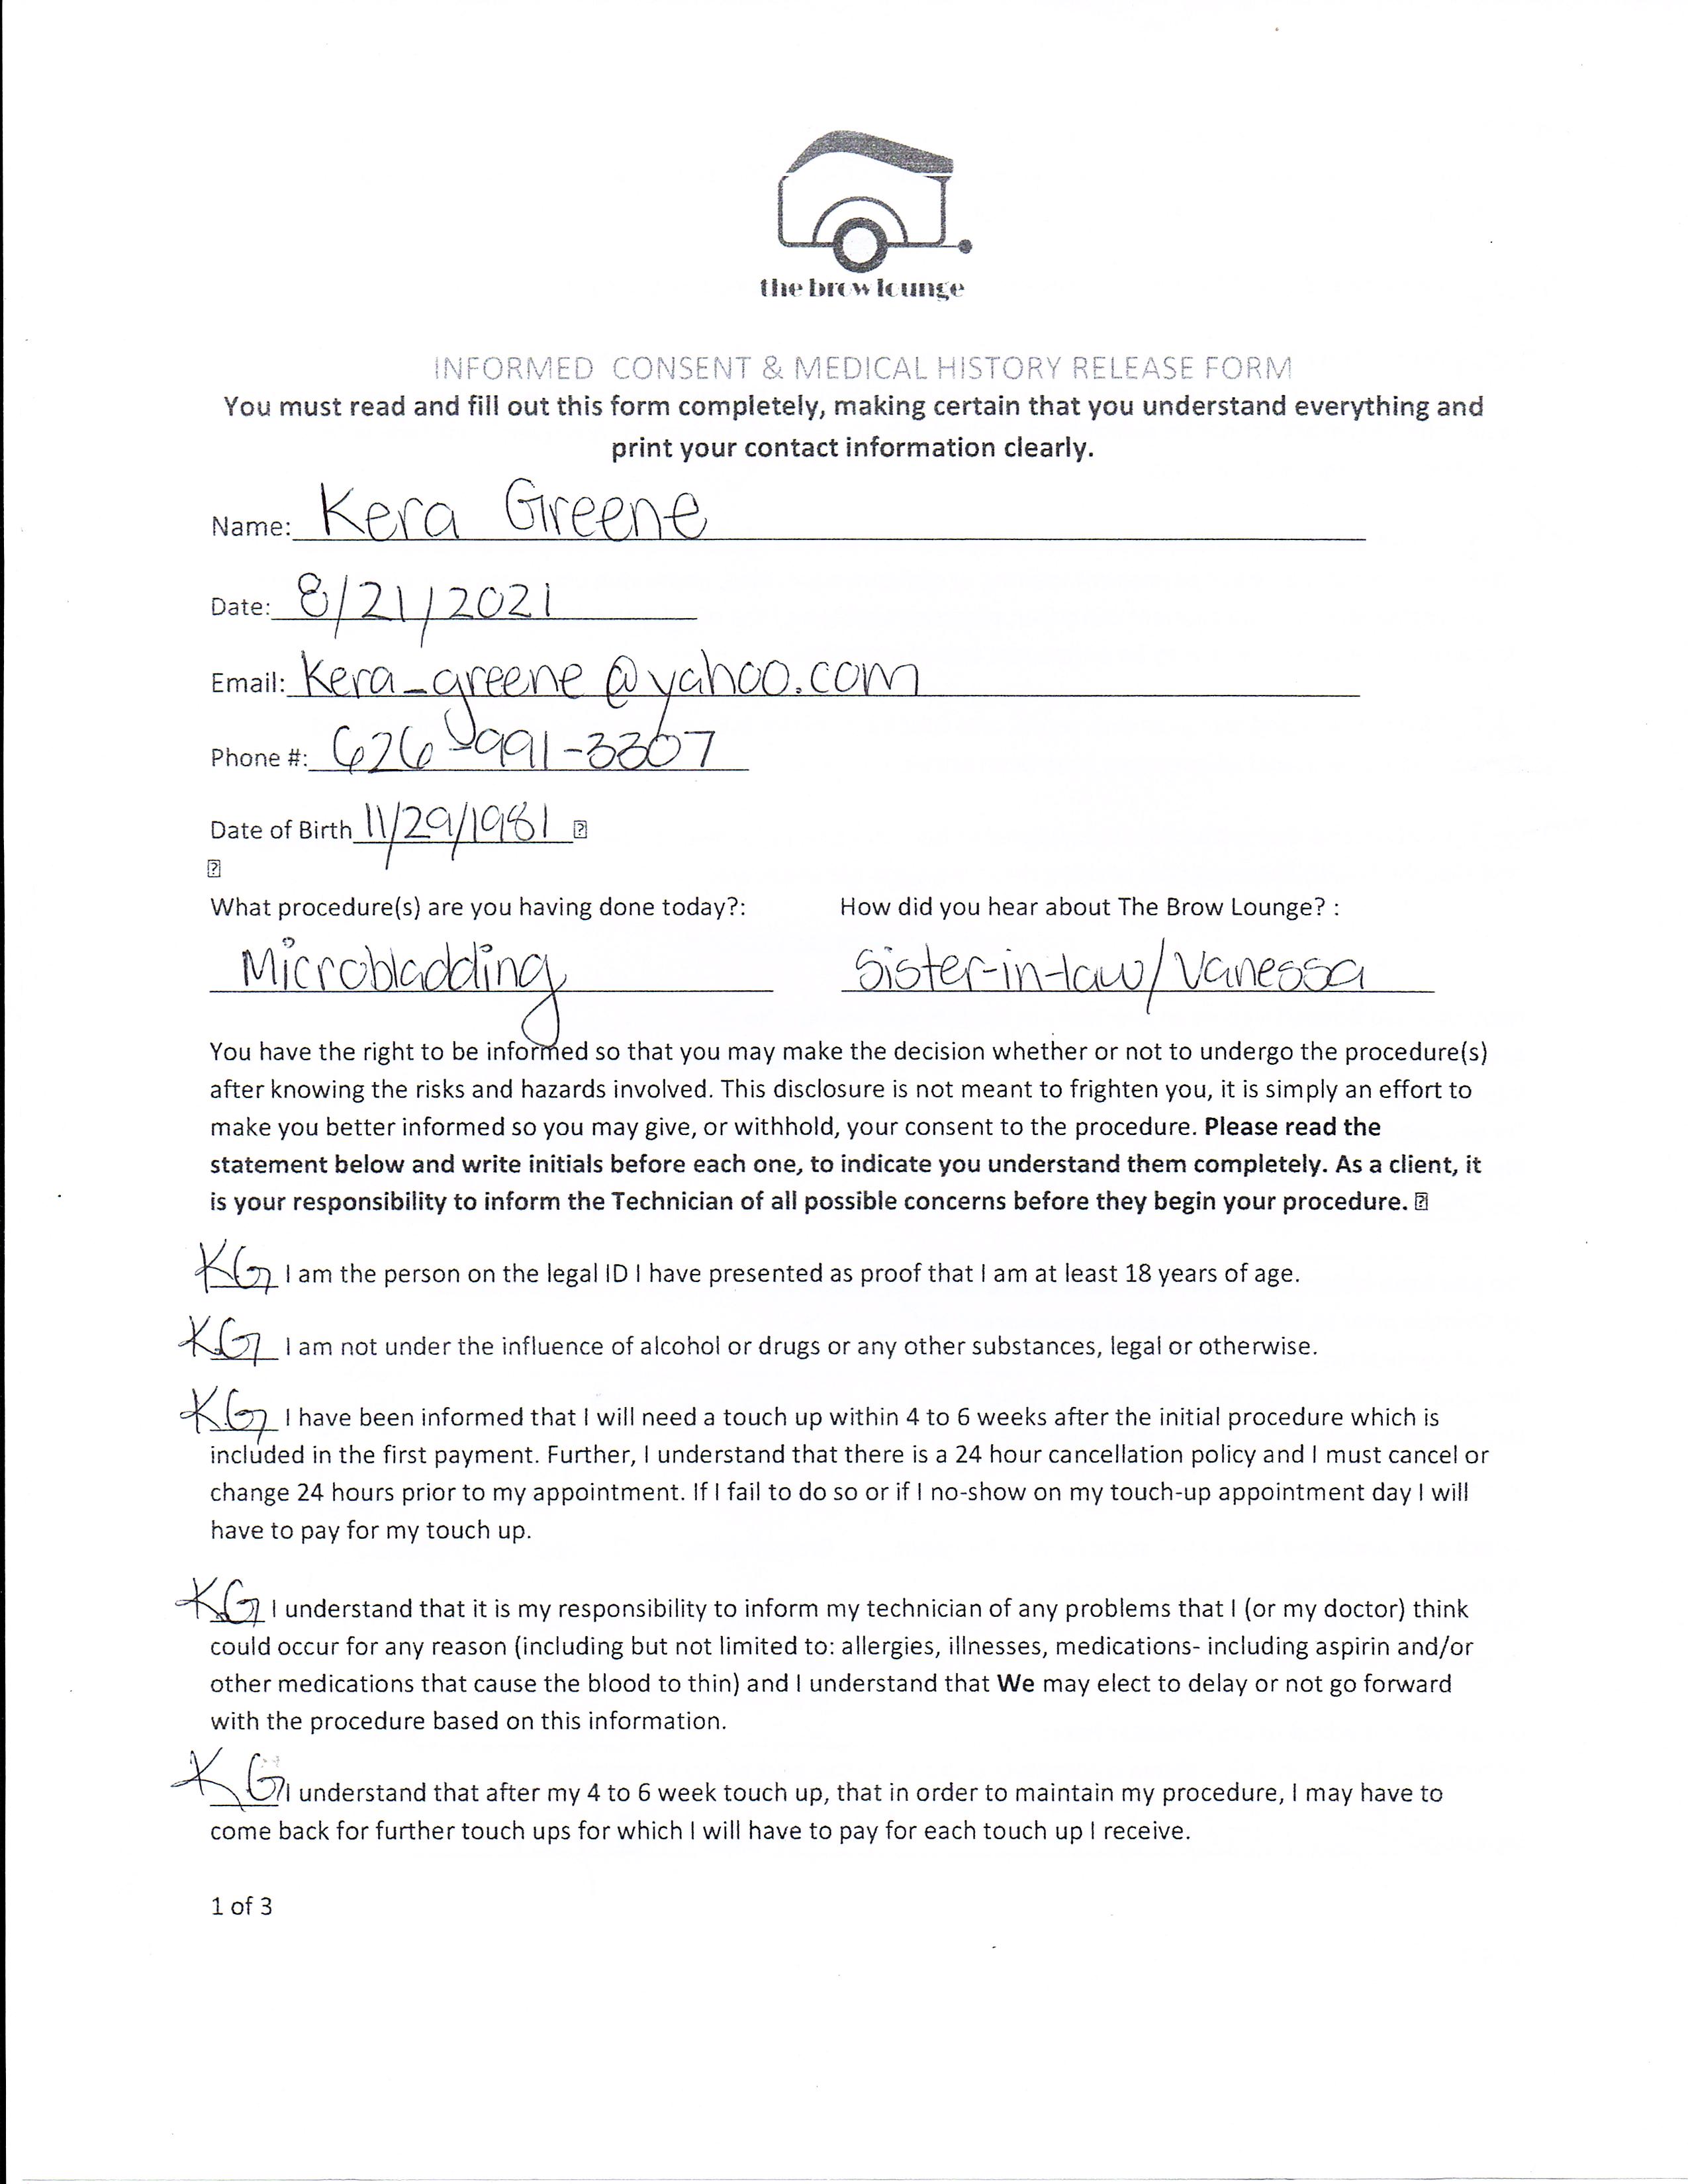 the brow lounge
INFORMED CONSENT & MEDICAL HISTORY RELEASE FORM
You must read and fill out this form completely, making certain that you understand everything and
print your contact information clearly.
Name: Kera Greene
Date: 8/21/2021
Email: Kera_greene@yahoo.com
Phone #: 626-991-3307
Date of Birth 11/29/1981
What procedure(s) are you having done today?: How did you hear about The Brow Lounge? :
Microbladding Sister-in-law/Vanessa
You have the right to be informed so that you may make the decision whether or not to undergo the procedure(s)
after knowing the risks and hazards involved. This disclosure is not meant to frighten you, it is simply an effort to
make you better informed so you may give, or withhold, your consent to the procedure. Please read the
statement below and write initials before each one, to indicate you understand them completely. As a client, it
is your responsibility to inform the Technician of all possible concerns before they begin your procedure.
KG I am the person on the legal ID I have presented as proof that I am at least 18 years of age.
KG I am not under the influence of alcohol or drugs or any other substances, legal or otherwise.
KG I have been informed that I will need a touch up within 4 to 6 weeks after the initial procedure which is
included in the first payment. Further, I understand that there is a 24 hour cancellation policy and I must cancel or
change 24 hours prior to my appointment. If I fail to do so or if I no-show on my touch-up appointment day I will
have to pay for my touch up.
KG I understand that it is my responsibility to inform my technician of any problems that I (or my doctor) think
could occur for any reason (including but not limited to: allergies, illnesses, medications- including aspirin and/or
other medications that cause the blood to thin) and I understand that We may elect to delay or not go forward
with the procedure based on this information.
KG I understand that after my 4 to 6 week touch up, that in order to maintain my procedure, I may have to
come back for further touch ups for which I will have to pay for each touch up I receive.
1 of 3